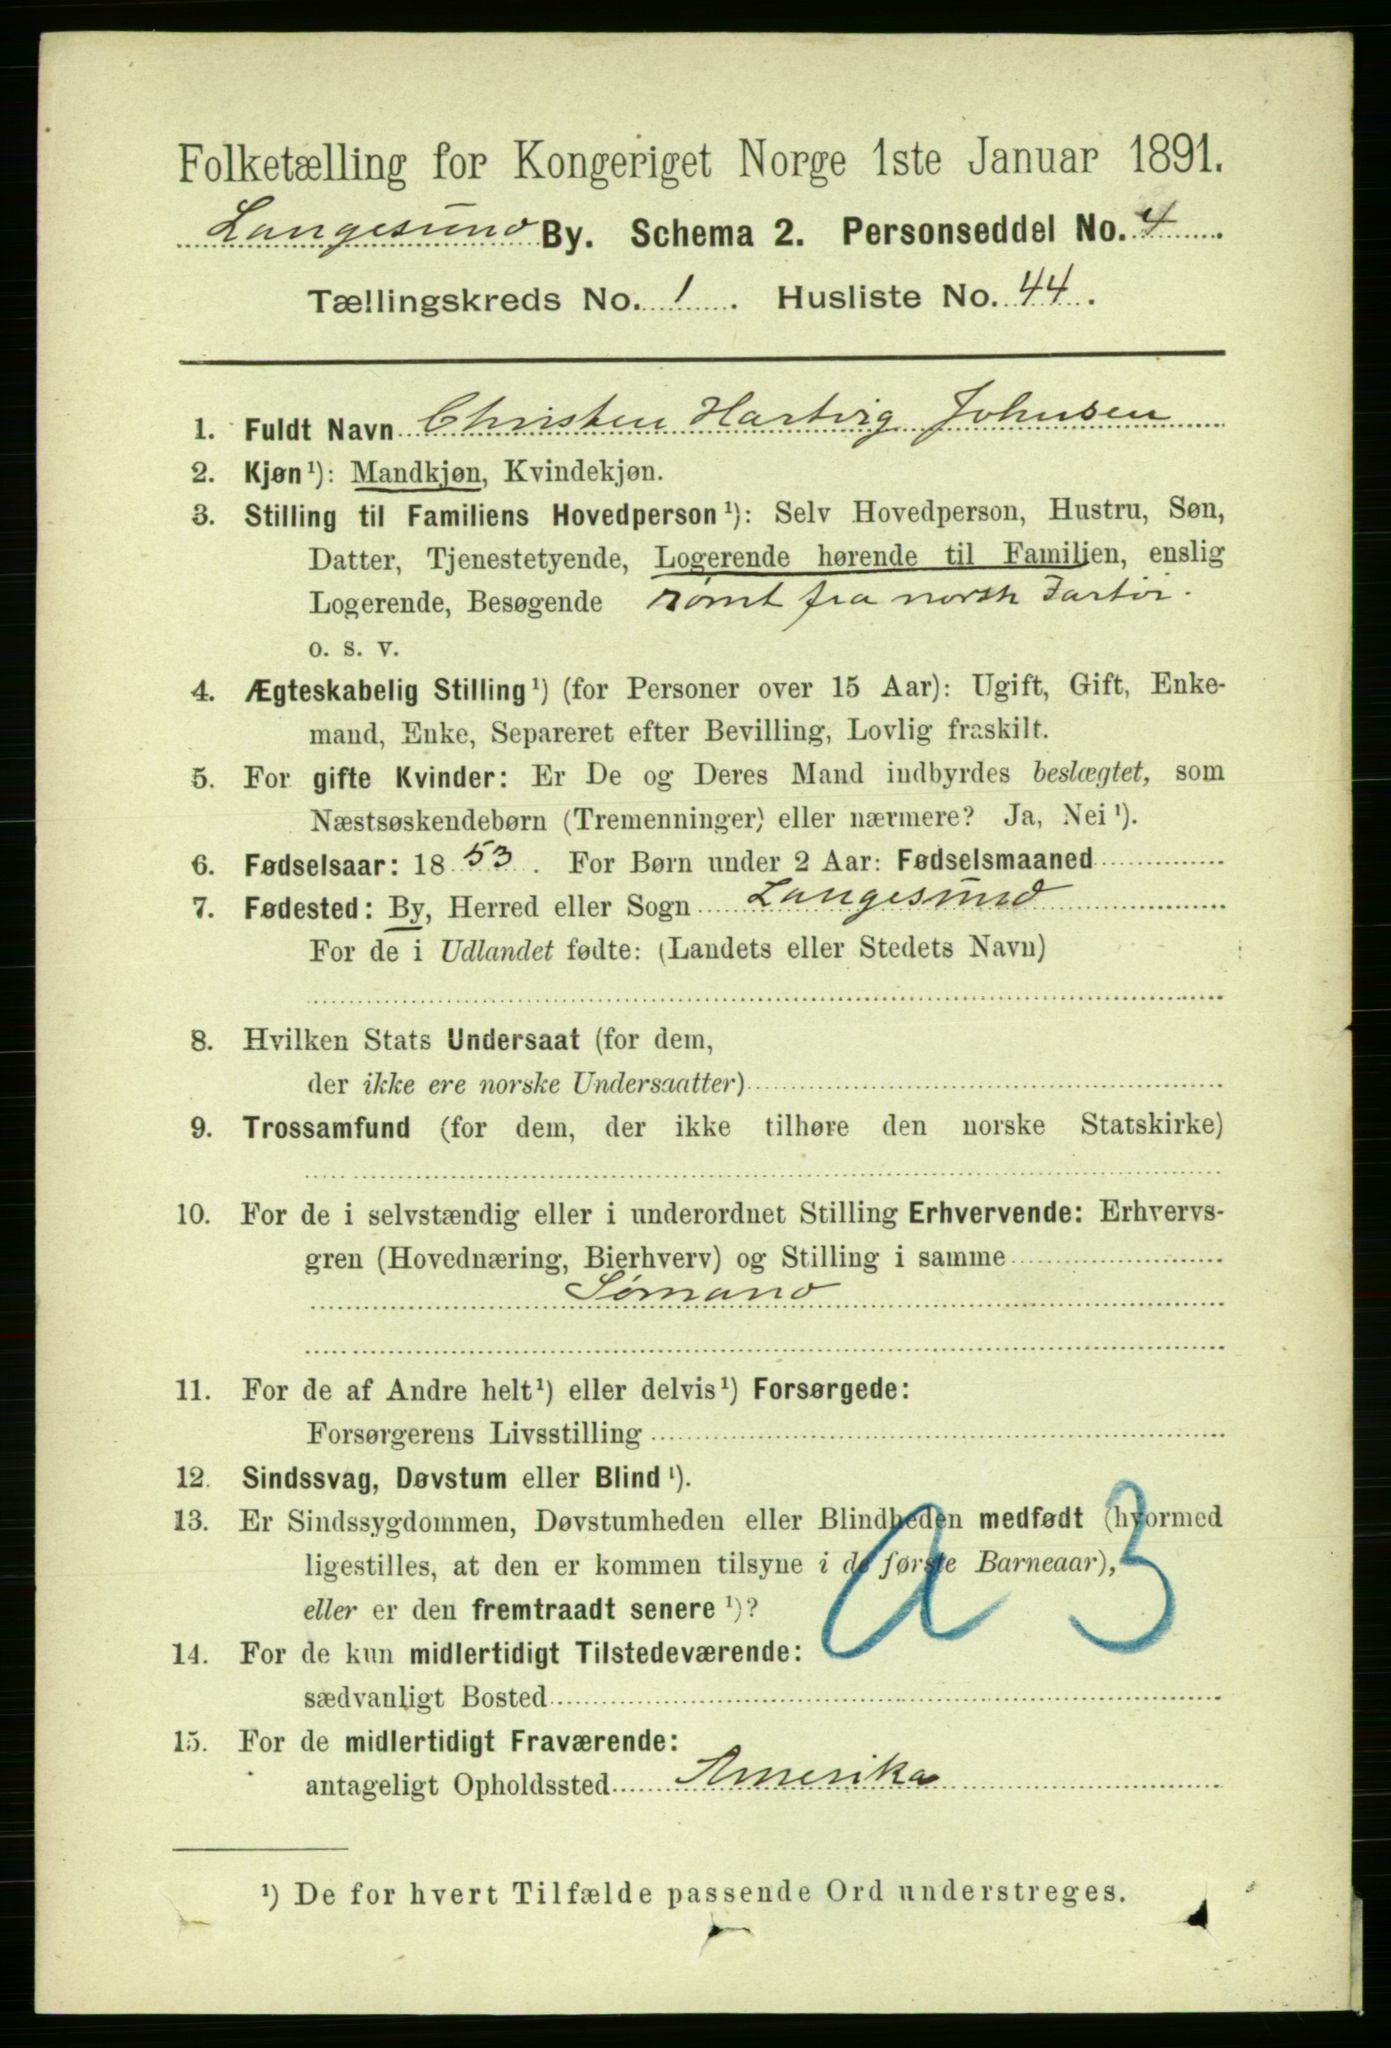 Folketælling for Kongeriget Norge 1ste Januar 1891.
Langesund By. Schema 2. Personseddel No. 4.
Tællingskreds No. 1. Husliste No. 44.
1. Fuldt Navn Christen Hartvig Johnsen
2. Kjøn¹): Mandkjøn, Kvindekjøn.
3. Stilling til Familiens Hovedperson¹): Selv Hovedperson, Hustru, Søn,
Datter, Tjenestetyende, Logerende hørende til Familien, enslig
Logerende, Besøgende rømt fra norsk Fartøi.
o. s. v.
4. Ægteskabelig Stilling¹) (for Personer over 15 Aar): Ugift, Gift, Enke-
mand, Enke, Separeret efter Bevilling, Lovlig fraskilt.
5. For gifte Kvinder: Er De og Deres Mand indbyrdes beslægtet, som
Næstsøskendebørn (Tremenninger) eller nærmere? Ja, Nei¹).
6. Fødselsaar: 1853. For Børn under 2 Aar: Fødselsmaaned
7. Fødested: By, Herred eller Sogn Langesund
For de i Udlandet fødte: (Landets eller Stedets Navn)
8. Hvilken Stats Undersaat (for dem,
der ikke ere norske Undersaatter)
9. Trossamfund (for dem, der ikke tilhøre den norske Statskirke)
10. For de i selvstændig eller i underordnet Stilling Erhvervende: Erhvervs-
gren (Hovednæring, Bierhverv) og Stilling i samme
Sømand
11. For de af Andre helt¹) eller delvis¹) Forsørgede:
Forsørgerens Livsstilling
12. Sindssvag, Døvstum eller Blind¹).
13. Er Sindssygdommen, Døvstumheden eller Blindheden medfødt (hvormed
ligestilles, at den er kommen tilsyne i de første Barneaar),
eller er den fremtraadt senere¹)?
a 3
14. For de kun midlertidigt Tilstedeværende:
sædvanligt Bosted
15. For de midlertidigt Fraværende:
antageligt Opholdssted Amerika
¹) De for hvert Tilfælde passende Ord understreges.